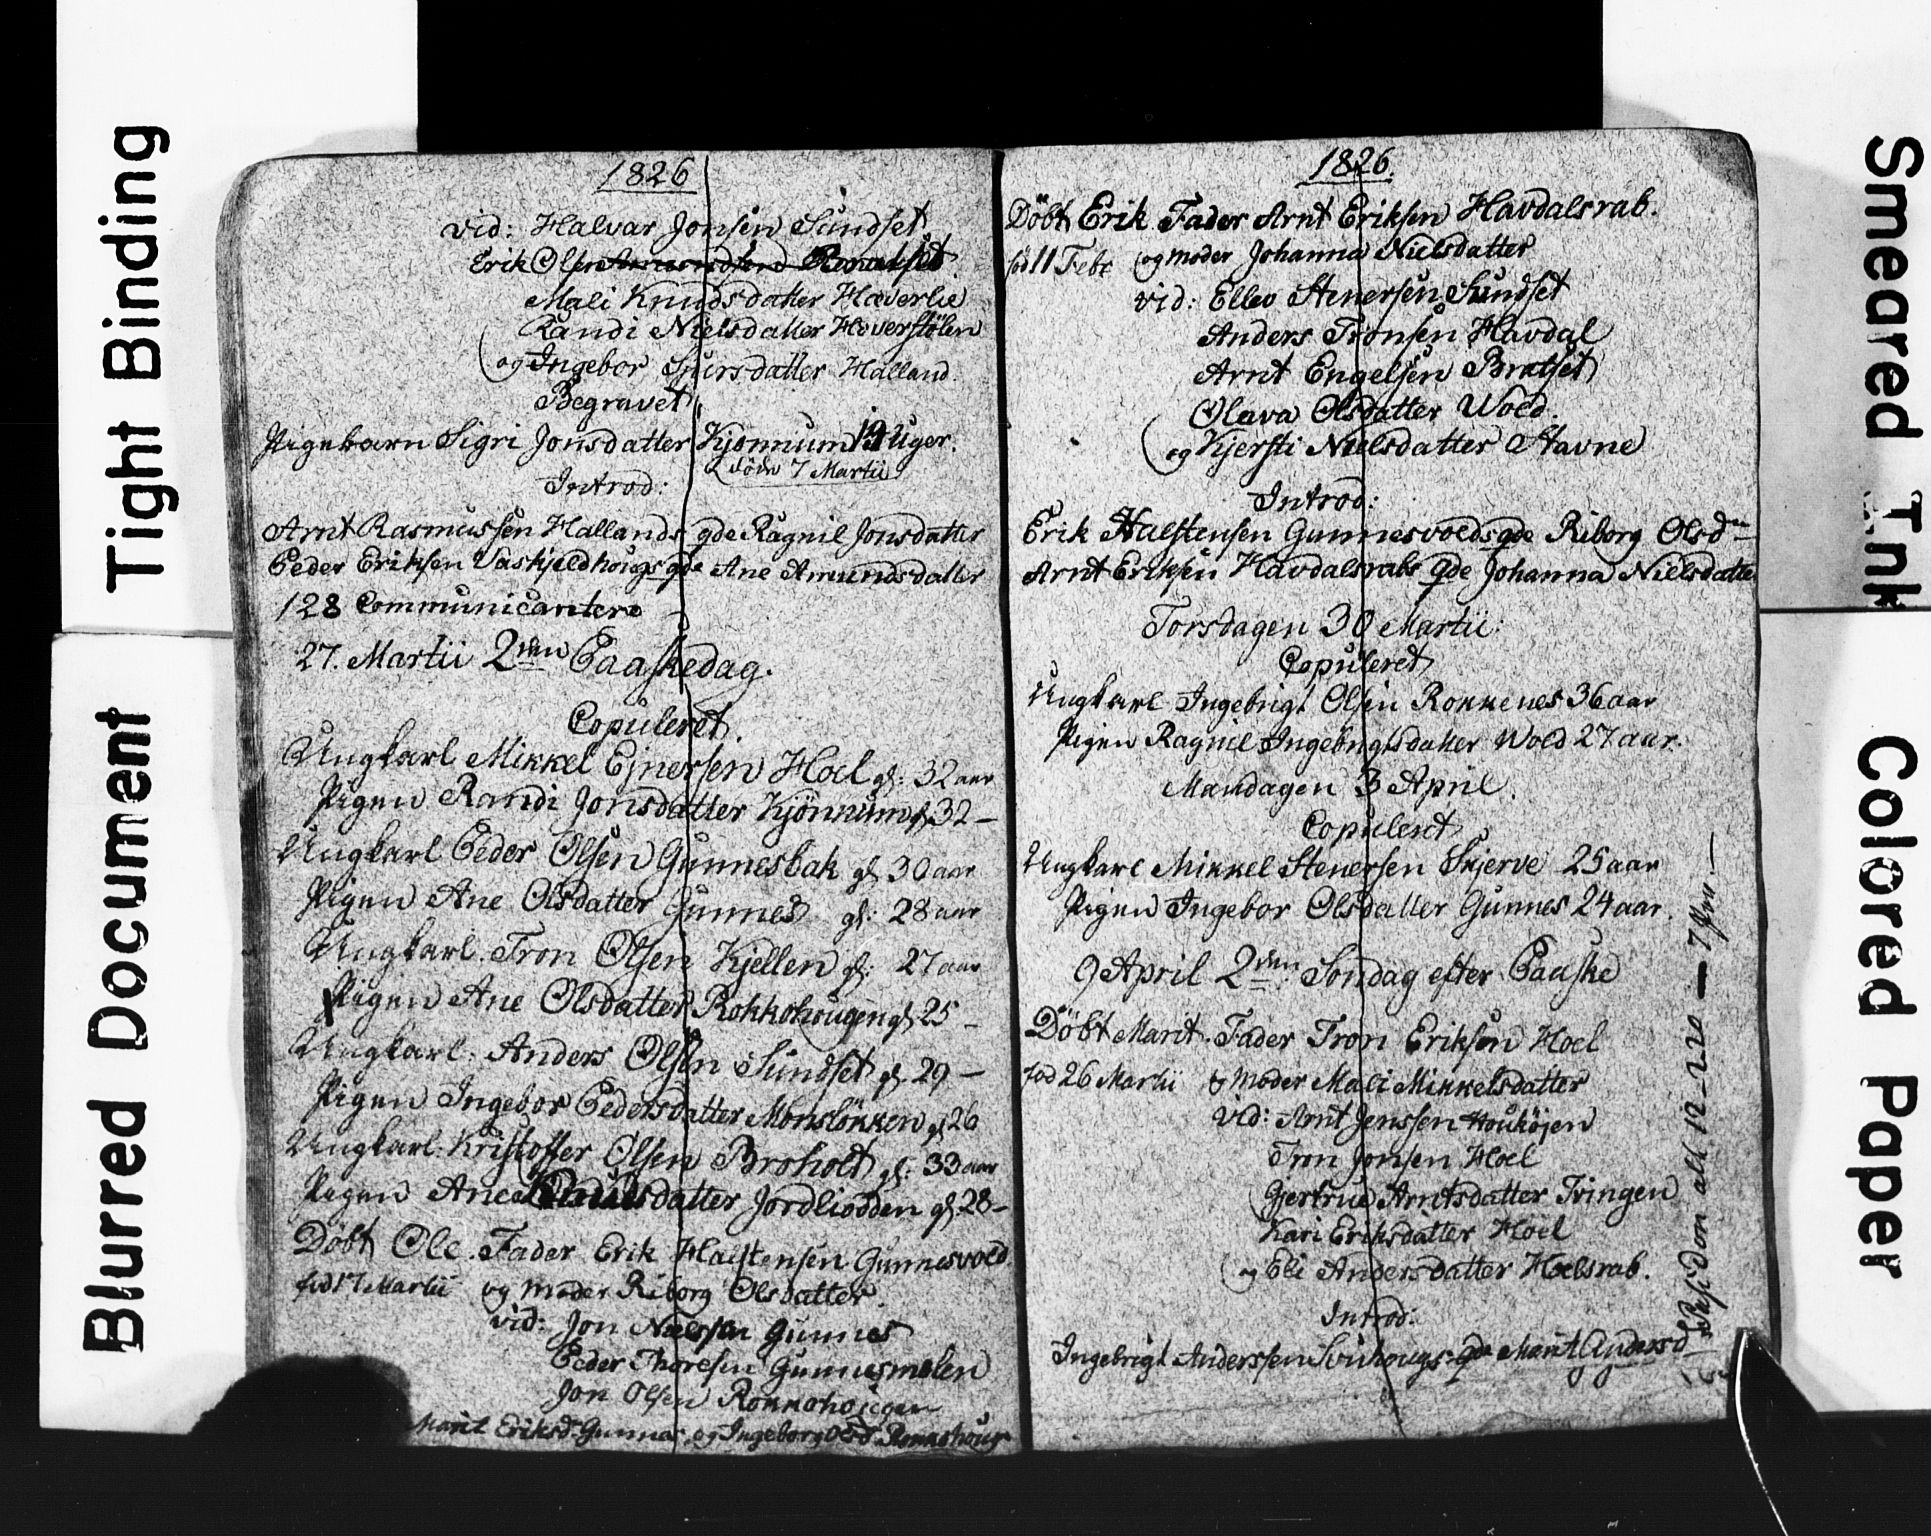 Tight Binding
Blurred Document
1826
vid: Halvar Jonsen Sundset
Erik Olsen
Mali Knudsdatter Haverlie
Randi Nielsdatter Haverstölen
og Ingebor Siversdatter Halland.
Begravet
Pigebarn Sigri Jonsdatter Kjönnum Uger.
döde 7 Martii
Introd:
Arnt Rasmussen Hallands qde Ragnil Jonsdatter
Peder Eriksen Vaskjeldhougs qde Ane Amundsdatter
128 Communicantere
27. Martii 2den Paaskedag.
Copuleret.
Ungkarl Mikkel Ejnersen Hoel gl: 32 aar
Pigen Randi Jonsdatter Kjönnum gl 32 –
Ungkarl Peder Olsen Gunnesbak gl 30 aar
Pigen Ane Olsdatter Gunnes gl: 28 aar
Ungkarl. Tron Olsen Kjellen gl: 27 aar
Pigen Ane Olsdatter Rokkohougen gl 25 –
Ungkarl. Anders Olsen Sundset gl. 29 –
Pigen Ingebor Pedersdatter Monslökken gl 26
Ungkarl: Kristoffer Olsen Broholt gl: 33 aar
Pigen Ane datter Jordliodden gl. 28 –
Döbt Ole. Fader Erik Halstensen Gunnesvold.
föd 17 Martii og Moder Riborg Olsdatter.
vid: Jon Nielssen Gunnes
Peder Thoresen Gunnesmelen
Jon Olsen
Marit Eriksd. Gunnes og Ingeborg Olsd.
1826.
Döbt Erik Fader Arnt Eriksen Havdalsrab.
föd 11 Febr og Moder Johanna Nielsdatter
vid: Ellev Stenersen Sundset
Anders Tronsen Havdal
Arnt Engelsen Bratset
Olava Olsdatter Wold.
og Kjersti Nielsdatter Stavne
Introd:
Erik Halstensen Gunnesvolds qde Riborg Olsdr –
Arnt Eriksen Havdalsrabs qde Johanna Nielsdatter
Torsdagen 30 Martii:
Copuleret
Ungkarl Ingebrigt Olsen Rokkenes 36 aar
Pigen Ragnil Ingebrigtsdatter Wold 27 aar.
Mandagen 3 April.
Copuleret
Ungkarl Mikkel Stenersen Skjerve 25 aar
Pigen Ingebor Olsdatter Gunnes 24 aar.
9 April 2den Söndag efter Paaske
Döbt Marit. Fader Tron Eriksen Hoel
föd 26 Martii & Moder Mali Mikkelsdatter
vid: Arnt Jenssen Houkøjen
Tron Jonsen Hoel
Gjertrue Arntsdatter Tvingen
Kari Eriksdatter Hoel
og Eli Andersdatter Hoelsrab.
Introd:
Ingebrigt Anderssen qde Marit Andersd
Smeared Ink
Colored Paper